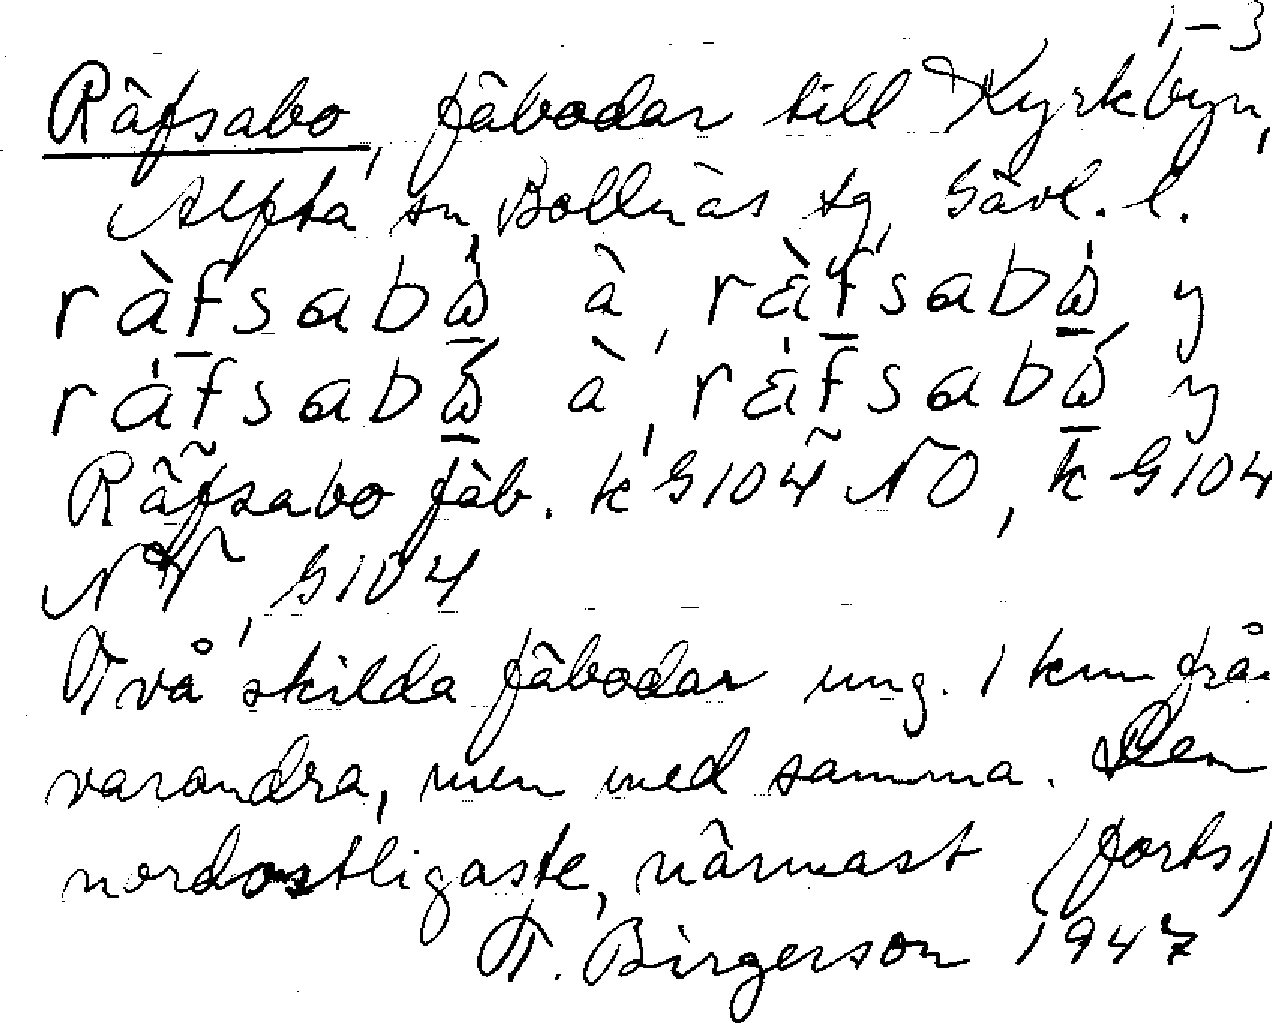 1–3
Räfsabo, fäbodar till Kyrkbyn,
Alfta sn Bollnäs tg, Gävl. l.
ràfsabὼ à, ràfsabὼ y
ráfsabώ à, ráfsabώ y
Räfsabo fäb. k G104 NO, k G104
NV, G104
Två skilda fäbodar ung. 1 km från
varandra, men med samma. Den
nordostligaste, närmast (forts.)
T. Birgerson 1947